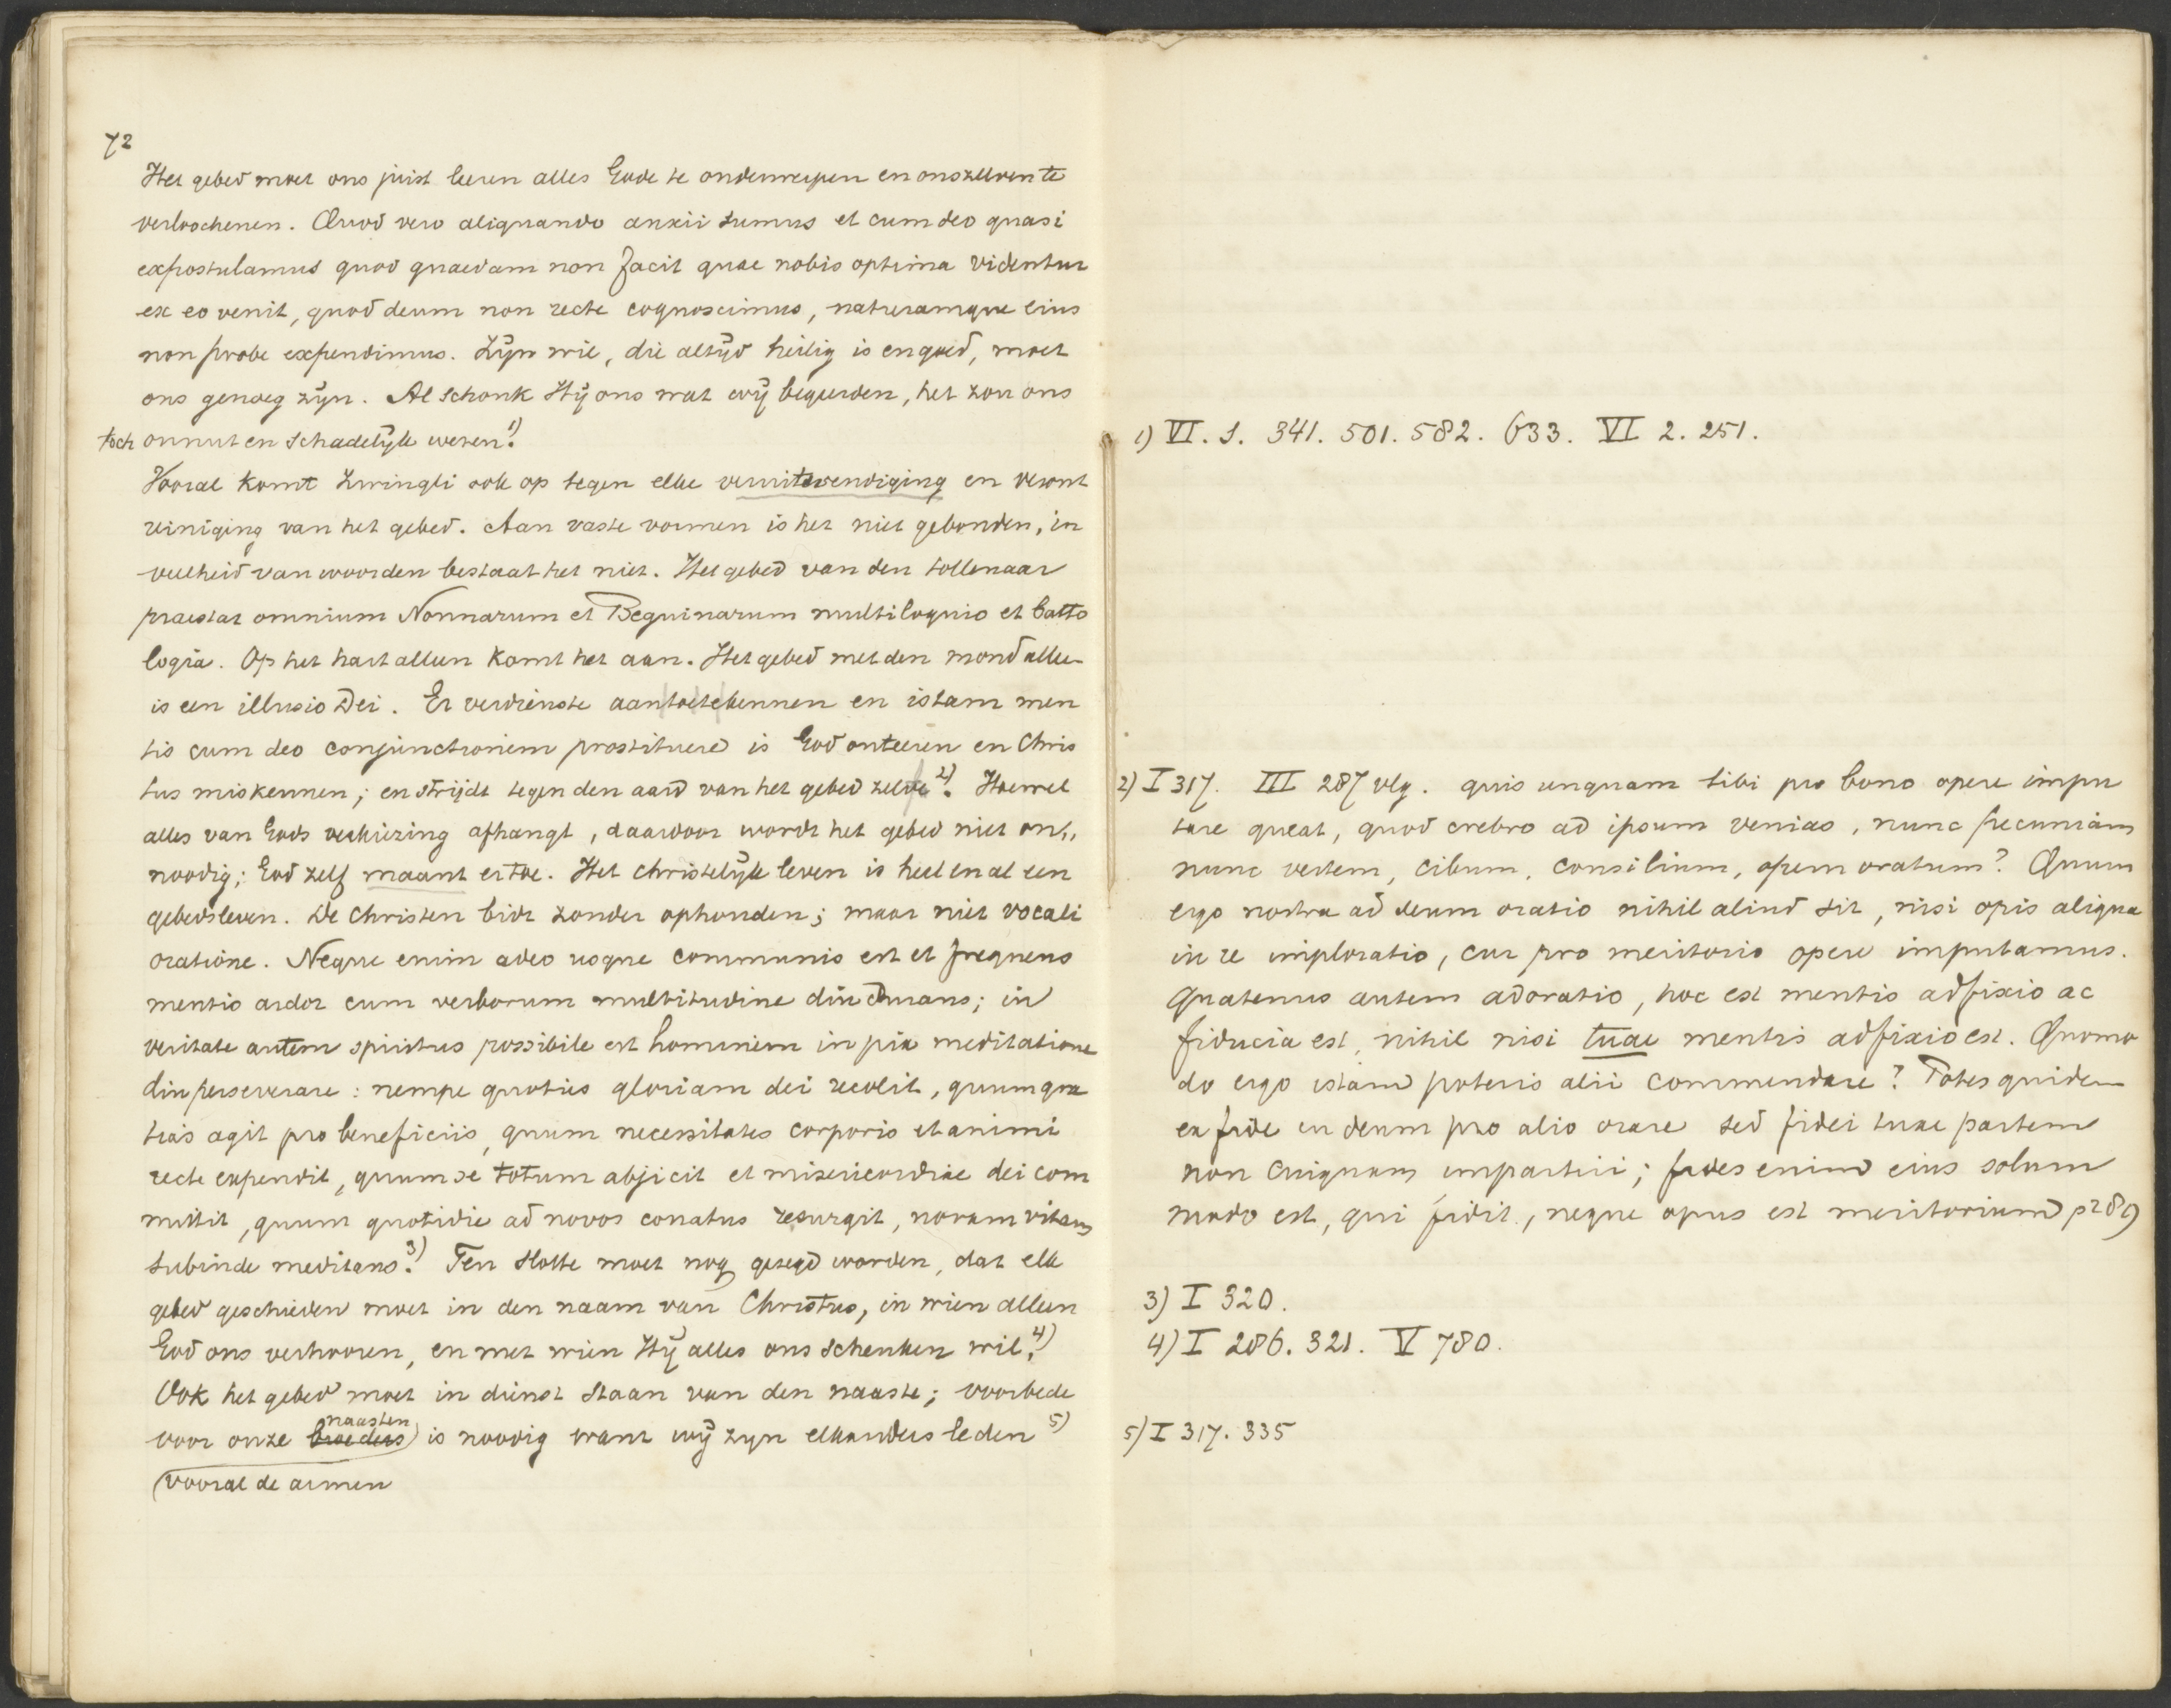 72
Het gebed moet ons juist leeren alles Gode te onderwerpen en onszelven te
verloochenen. Quod vero aliquando anxii sumus et cum deo quasi
expostulamus quod quaedam non facit quae nobis optima videntur
ex eo venit, quod deum non recte cognoscimus, naturamque eius
non probe expendimus. Zijn wil, die altijd heilig is en goed, moet
ons genoeg zijn. Al schonk Hij ons wat wij begeerden, het zou ons
toch onnut en schadelijk wezen.1)
Vooral komt Zwingli ook op tegen elke veruitwendiging en veront
reiniging van het gebed. Aan vaste vormen is het niet gebonden, in
veelheid van woorden bestaat het niet. Het gebed van den tollenaar
praestat omnium Nonnarum et Beguinarum multiloquio et batto
logia. Op het hart alleen komt het aan. Het gebed met den mond alleen
is een illusio Dei. Er verdienste aan toetekennen en istam men
tis cum deo conjunctionem prostituere is God onteeren en Chris
tus miskennen; en strijdt tegen den aard van het gebed zelve2). Hoewel
alles van Gods verkiezing afhangt, daardoor wordt het gebed niet on,,
noodig; God zelf maant ertoe. Het christelijk leven is heel en al een
gebedsleven. De Christen bidt zonder ophouden; maar niet vocali
oratione. Neque enim adeo usque communis est et frequens
mentis ardor cum verborum multitudine diu durans; in
veritate autem spiritus possibile est hominem in pia meditatione
diu perseverare: nempe quoties gloriam dei recolit, quum gra
tias agit pro beneficiis, quum necessitates corporis et animi
recte expendit, quum se totum abjicit et misericordiae dei com
mittit, quum quotidie ad novos conatus resurgit, novam vitam
subinde meditans.3) Ten slotte moet nog gezegd worden, dat elk
gebed geschieden moet in den naam van Christus, in wien alleen
God ons verhooren, en met wien Hij alles ons schenken wil.4)
Ook het gebed moet in dienst staan van den naaste; voorbede
naasten
voor onze broeders is noodig want wij zijn elkanders leden 5)
(vooral de armen
1) VI. 1. 341. 501. 582. 633. VI 2. 251.
2) I 317. III 287 vlg. quis unquam tibi pro bono opere impu
tare queat, quod crebro ad ipsum venias, nunc pecuniam
nunc vestem, cibum, consilium, opem oratum? Quum
ergo nostra ad deum oratio nihil aliud sit, nisi opis aliqua
in re imploratio, cur pro meritorio opere imputamus.
Quatenus autem adoratio, hoc est mentis adfixio ac
fiducia est, nihil nisi tuae mentis adfixio est. Quomo
do ergo istam poteris alii commendare? Potes quidem
ex fide in deum pro alio orare sed fidei tuae partem
non cuiquam impartiri; fides enim eius solum
modo est, qui fidit, neque opus est meritorium p 289
3) I 320.
4) I 286. 321. V 780.
5) I 317. 335